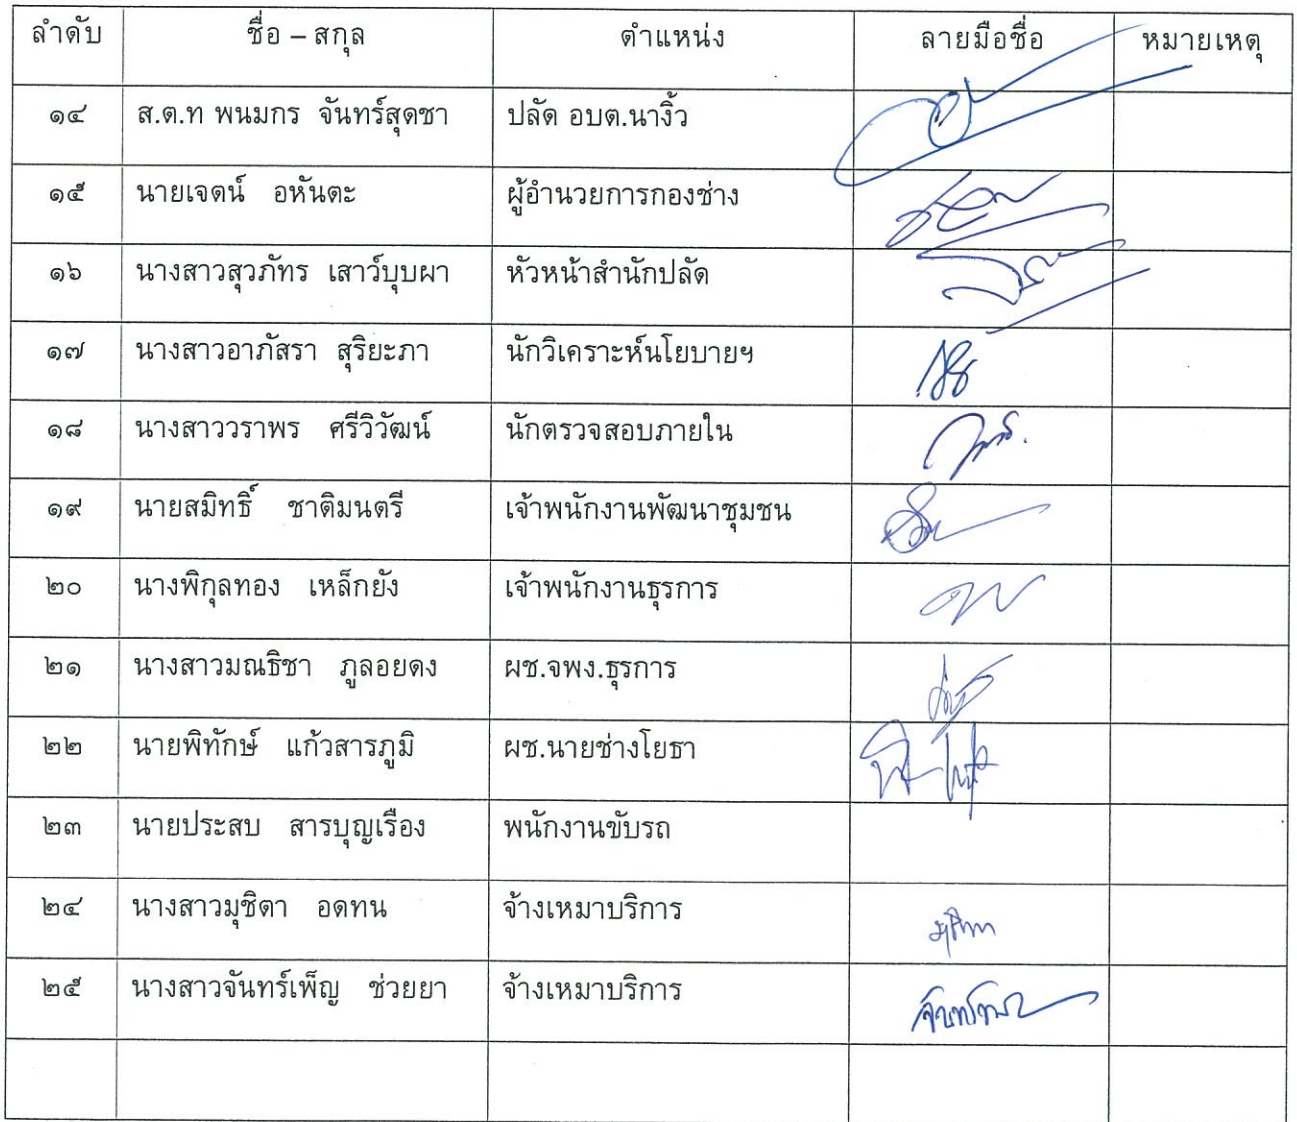 ลำดับ ชื่อ – สกุล ตำแหน่ง ลายมือชื่อ หมายเหตุ
๑๔ ส.ต.ท พนมกร จันทร์สุดชา ปลัด อบต.นางิ้ว
๑๕ นายเจตน์ อหันตะ ผู้อำนวยการกองช่าง
๑๖ นางสาวสุวภัทร เสาว์บุบผา หัวหน้าสำนักปลัด
๑๗ นางสาวอาภัสรา สุริยะภา นักวิเคราะห์นโยบายฯ
๑๘ นางสาววราพร ศรีวิวัฒน์ นักตรวจสอบภายใน
๑๙ นายสมิทธิ์ ชาติมนตรี เจ้าพนักงานพัฒนาชุมชน
๒๐ นางพิกุลทอง เหล็กยัง เจ้าพนักงานธุรการ
๒๑ นางสาวมณธิชา ภูลอยดง ผช.จพง.ธุรการ
๒๒ นายพิทักษ์ แก้วสารภูมิ ผช.นายช่างโยธา
๒๓ นายประสบ สารบุญเรือง พนักงานขับรถ
๒๔ นางสาวมุชิตา อดทน จ้างเหมาบริการ
๒๕ นางสาวจันทร์เพ็ญ ช่วยยา จ้างเหมาบริการ